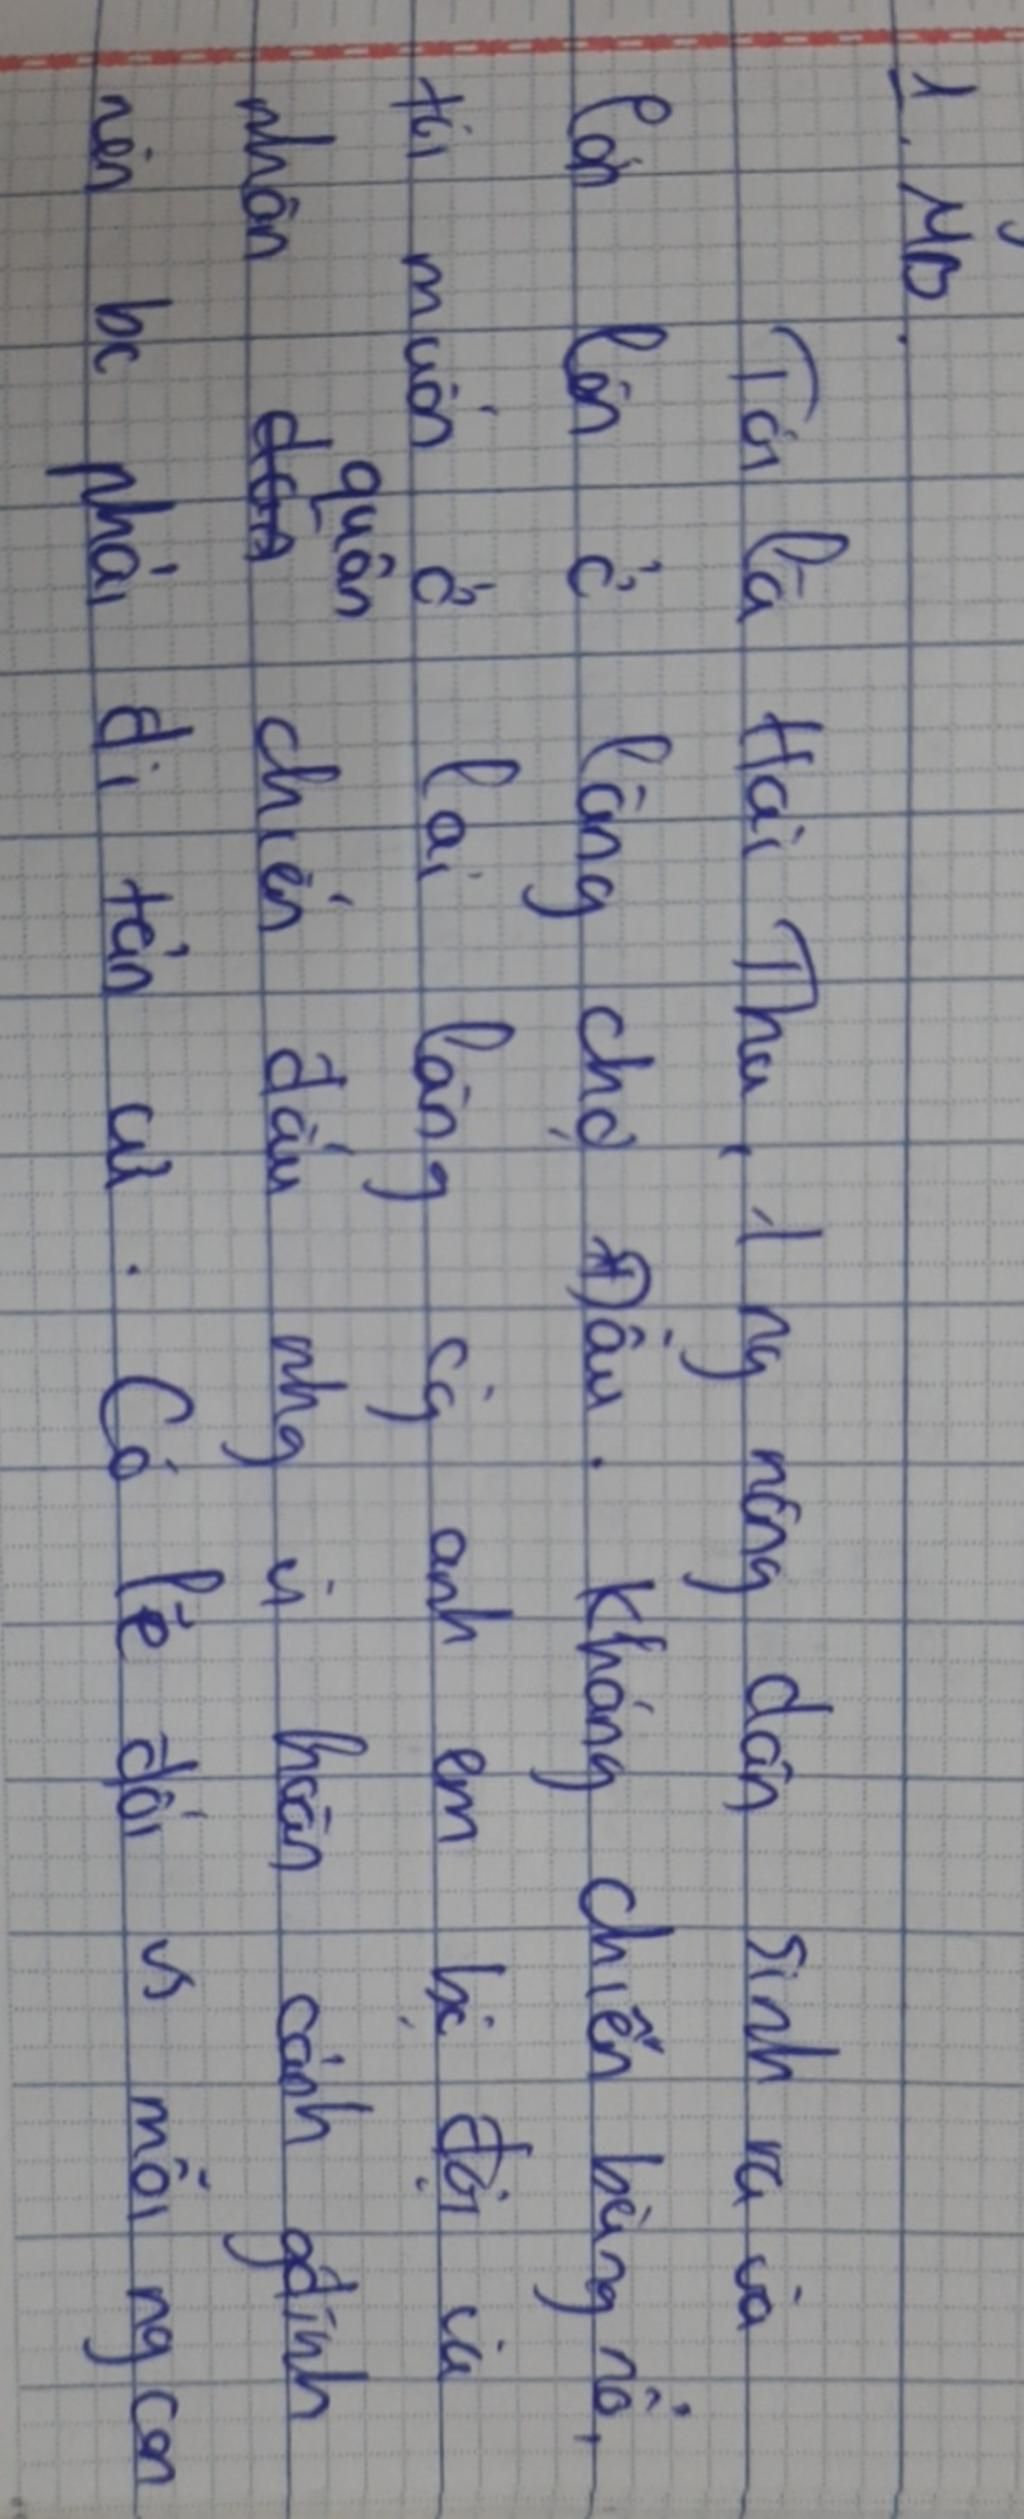 1. MB.
Tôi là Hai Thu, 1 ng nông dân sinh ra và
lớn lên ở làng chợ Dầu. Kháng chiến bùng nổ,
tôi muốn ở lại làng cg anh em bộ đội và
nhân quân chiến đấu nhg vì hoàn cảnh gđình
nên bc phải đi tản cư. Có lẽ đối vs mỗi ng con